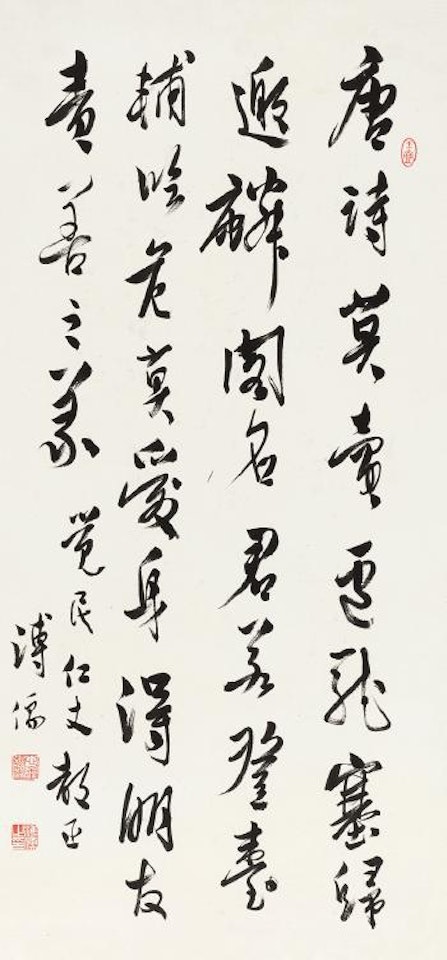 唐詩莫賣盧龍塞歸
邀麟閣名君若登臺
輔臨危莫愛身得朋友
責善之義 覺民仁丈教正
溥儒